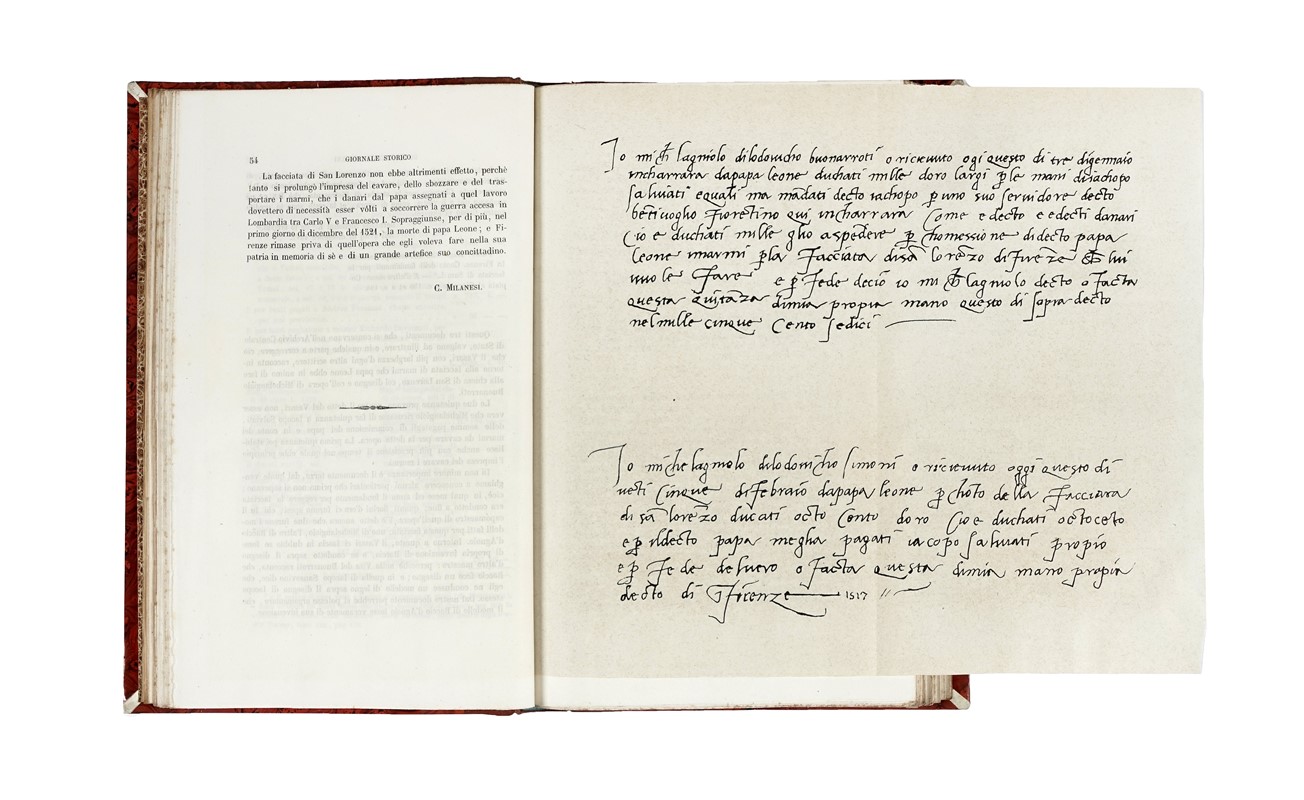 54 GIORNALE STORICO
La facciata di San Lorenzo non ebbe altrimenti effetto, perchè
tanto si prolungò l'impresa del cavare, dello sbozzare e del tras-
portare i marmi, che i danari dal papa assegnati a quel lavoro
dovettero di necessità esser vòlti a soccorrere la guerra accesa in
Lombardia tra Carlo V e Francesco I. Sopraggiunse, per di più, nel
primo giorno di dicembre del 1521, la morte di papa Leone; e Fi-
renze rimase priva di quell'opera che egli voleva fare nella sua
patria in memoria di sè e di un grande artefice suo concittadino.
C. MILANESI.
Io lagniolo dilodovicho buonarroti o ricievuto ogi questo di tre digennaio
incharrara dapapa leone duchati mille doro largi p le mani di iachopo
salviati equali ma madati decto iachopo p uno suo servidore decto
betivoglio fiorentino qui incharrara come e decto e edecti danari
cio e duchati mille gho aspedere p chomessione didecto papa
leone imarmi pla facciata disa lorezo difireze lui
vuole fare e p fede decio io mi lagniolo decto o facta
questa quitaza dimia propia mano questo di sopra decto
nel mille cinque cento sedici
Io michelagniolo dilodovicho simoni o ricievuto oggi questo di
veti cinque difebraio dapapa leone p choto della facciata
di sa lorezo ducati octo cento doro cio e duchati octoceto
e p ildecto papa megha pagati iacopo salviati propio
e p fede delvero o facta questa dimia mano propia
decto di firenze 1517